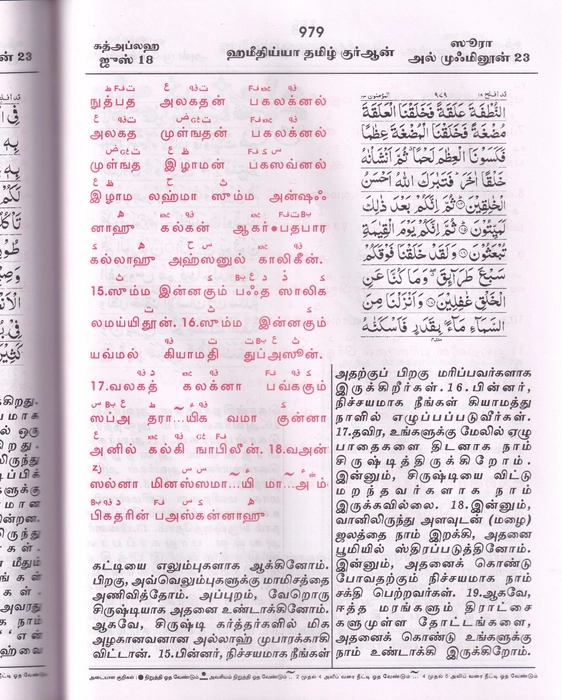 979
கத்அப்லஹ
ஜுஸ் 18
ஹமீதிய்யா தமிழ் குர்ஆன்
ஸூரா
அல் முஃமினூன் 23
நுத்பத அலகதன் பகலக்னல்
அலகத முள்ஙதன் பகலக்னல்
முள்ஙத இழாமன் பகஸவ்னல்
இழாம லஹ்மா ஸும்ம அன்ஷஃ
னாஹு கல்கன் ஆகர்•பதபார
கல்லாஹு அஹ்ஸனுல் காலிகீன்.
15.ஸும்ம இன்னகும் பஃத ஸாலிக
லமய்யிதூன். 16.ஸும்ம இன்னகும்
யவ்மல் கியாமதி துப்அஸூன்.
17.வலகத் கலக்னா பவ்ககும்
ஸப்அ தரா...யிக வமா குன்னா
அனில் கல்கி ஙாபிலீன். 18.வஅன்
ஸல்னா மினஸ்ஸமா...யி மா...அம்
பிகதரின் பஅஸ்கன்னாஹு
النُّطْفَةَ عَلَقَةً فَخَلَقْنَا الْعَلَقَةَ
مُضْغَةً فَخَلَقْنَا الْمُضْغَةَ عِظٰمًا
فَكَسَوْنَا الْعِظٰمَ لَحْمًا ثُمَّ أَنْشَأْنٰهُ
خَلْقًا اٰخَرَ فَتَبٰرَكَ اللّٰهُ أَحْسَنُ
الْخٰلِقِيْنَ ثُمَّ إِنَّكُمْ بَعْدَ ذٰلِكَ
لَمَيِّتُوْنَ ثُمَّ إِنَّكُمْ يَوْمَ الْقِيٰمَةِ
تُبْعَثُوْنَ وَلَقَدْ خَلَقْنَا فَوْقَكُمْ
سَبْعَ طَرَآئِقَ وَمَا كُنَّا عَنِ
الْخَلْقِ غٰفِلِيْنَ وَأَنْزَلْنَا مِنَ
السَّمَآءِ مَآءً بِقَدَرٍ فَأَسْكَنّٰهُ
கட்டியை எலும்புகளாக ஆக்கினோம்.
பிறகு, அவ்வெலும்புகளுக்கு மாமிசத்தை
அணிவித்தோம். அப்புறம், வேறொரு
சிருஷ்டியாக அதனை உண்டாக்கினோம்.
ஆகவே, சிருஷ்டி கர்த்தர்களில் மிக
அழகானவனான அல்லாஹ் முபாரக்காகி
விட்டான். 15.பின்னர், நிச்சயமாக நீங்கள்
அதற்குப் பிறகு மரிப்பவர்களாக
இருக்கிறீர்கள். 16.பின்னர்,
நிச்சயமாக நீங்கள் கியாமத்து
நாளில் எழுப்பப்படுவீர்கள்.
17.தவிர, உங்களுக்கு மேலில் ஏழு
பாதைகளை திடனாக நாம்
சிருஷ்டித்திருக்கிறோம்.
இன்னும், சிருஷ்டியை விட்டு
மறந்தவர்களாக நாம்
இருக்கவில்லை. 18.இன்னும்,
வானிலிருந்து அளவுடன் (மழை)
ஜலத்தை நாம் இறக்கி, அதனை
பூமியில் ஸ்திரப்படுத்தினோம்.
இன்னும், அதனைக் கொண்டு
போவதற்கும் நிச்சயமாக நாம்
சக்தி பெற்றவர்கள். 19.ஆகவே,
ஈத்த மரங்களும் திராட்சை
களுமுள்ள தோட்டங்களை,
அதனைக் கொண்டு உங்களுக்கு
நாம் உண்டாக்கி இருக்கிறோம்.